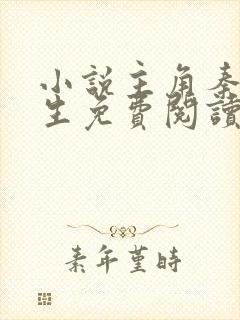 小說主角秦
生免費閱讀
素年堇時